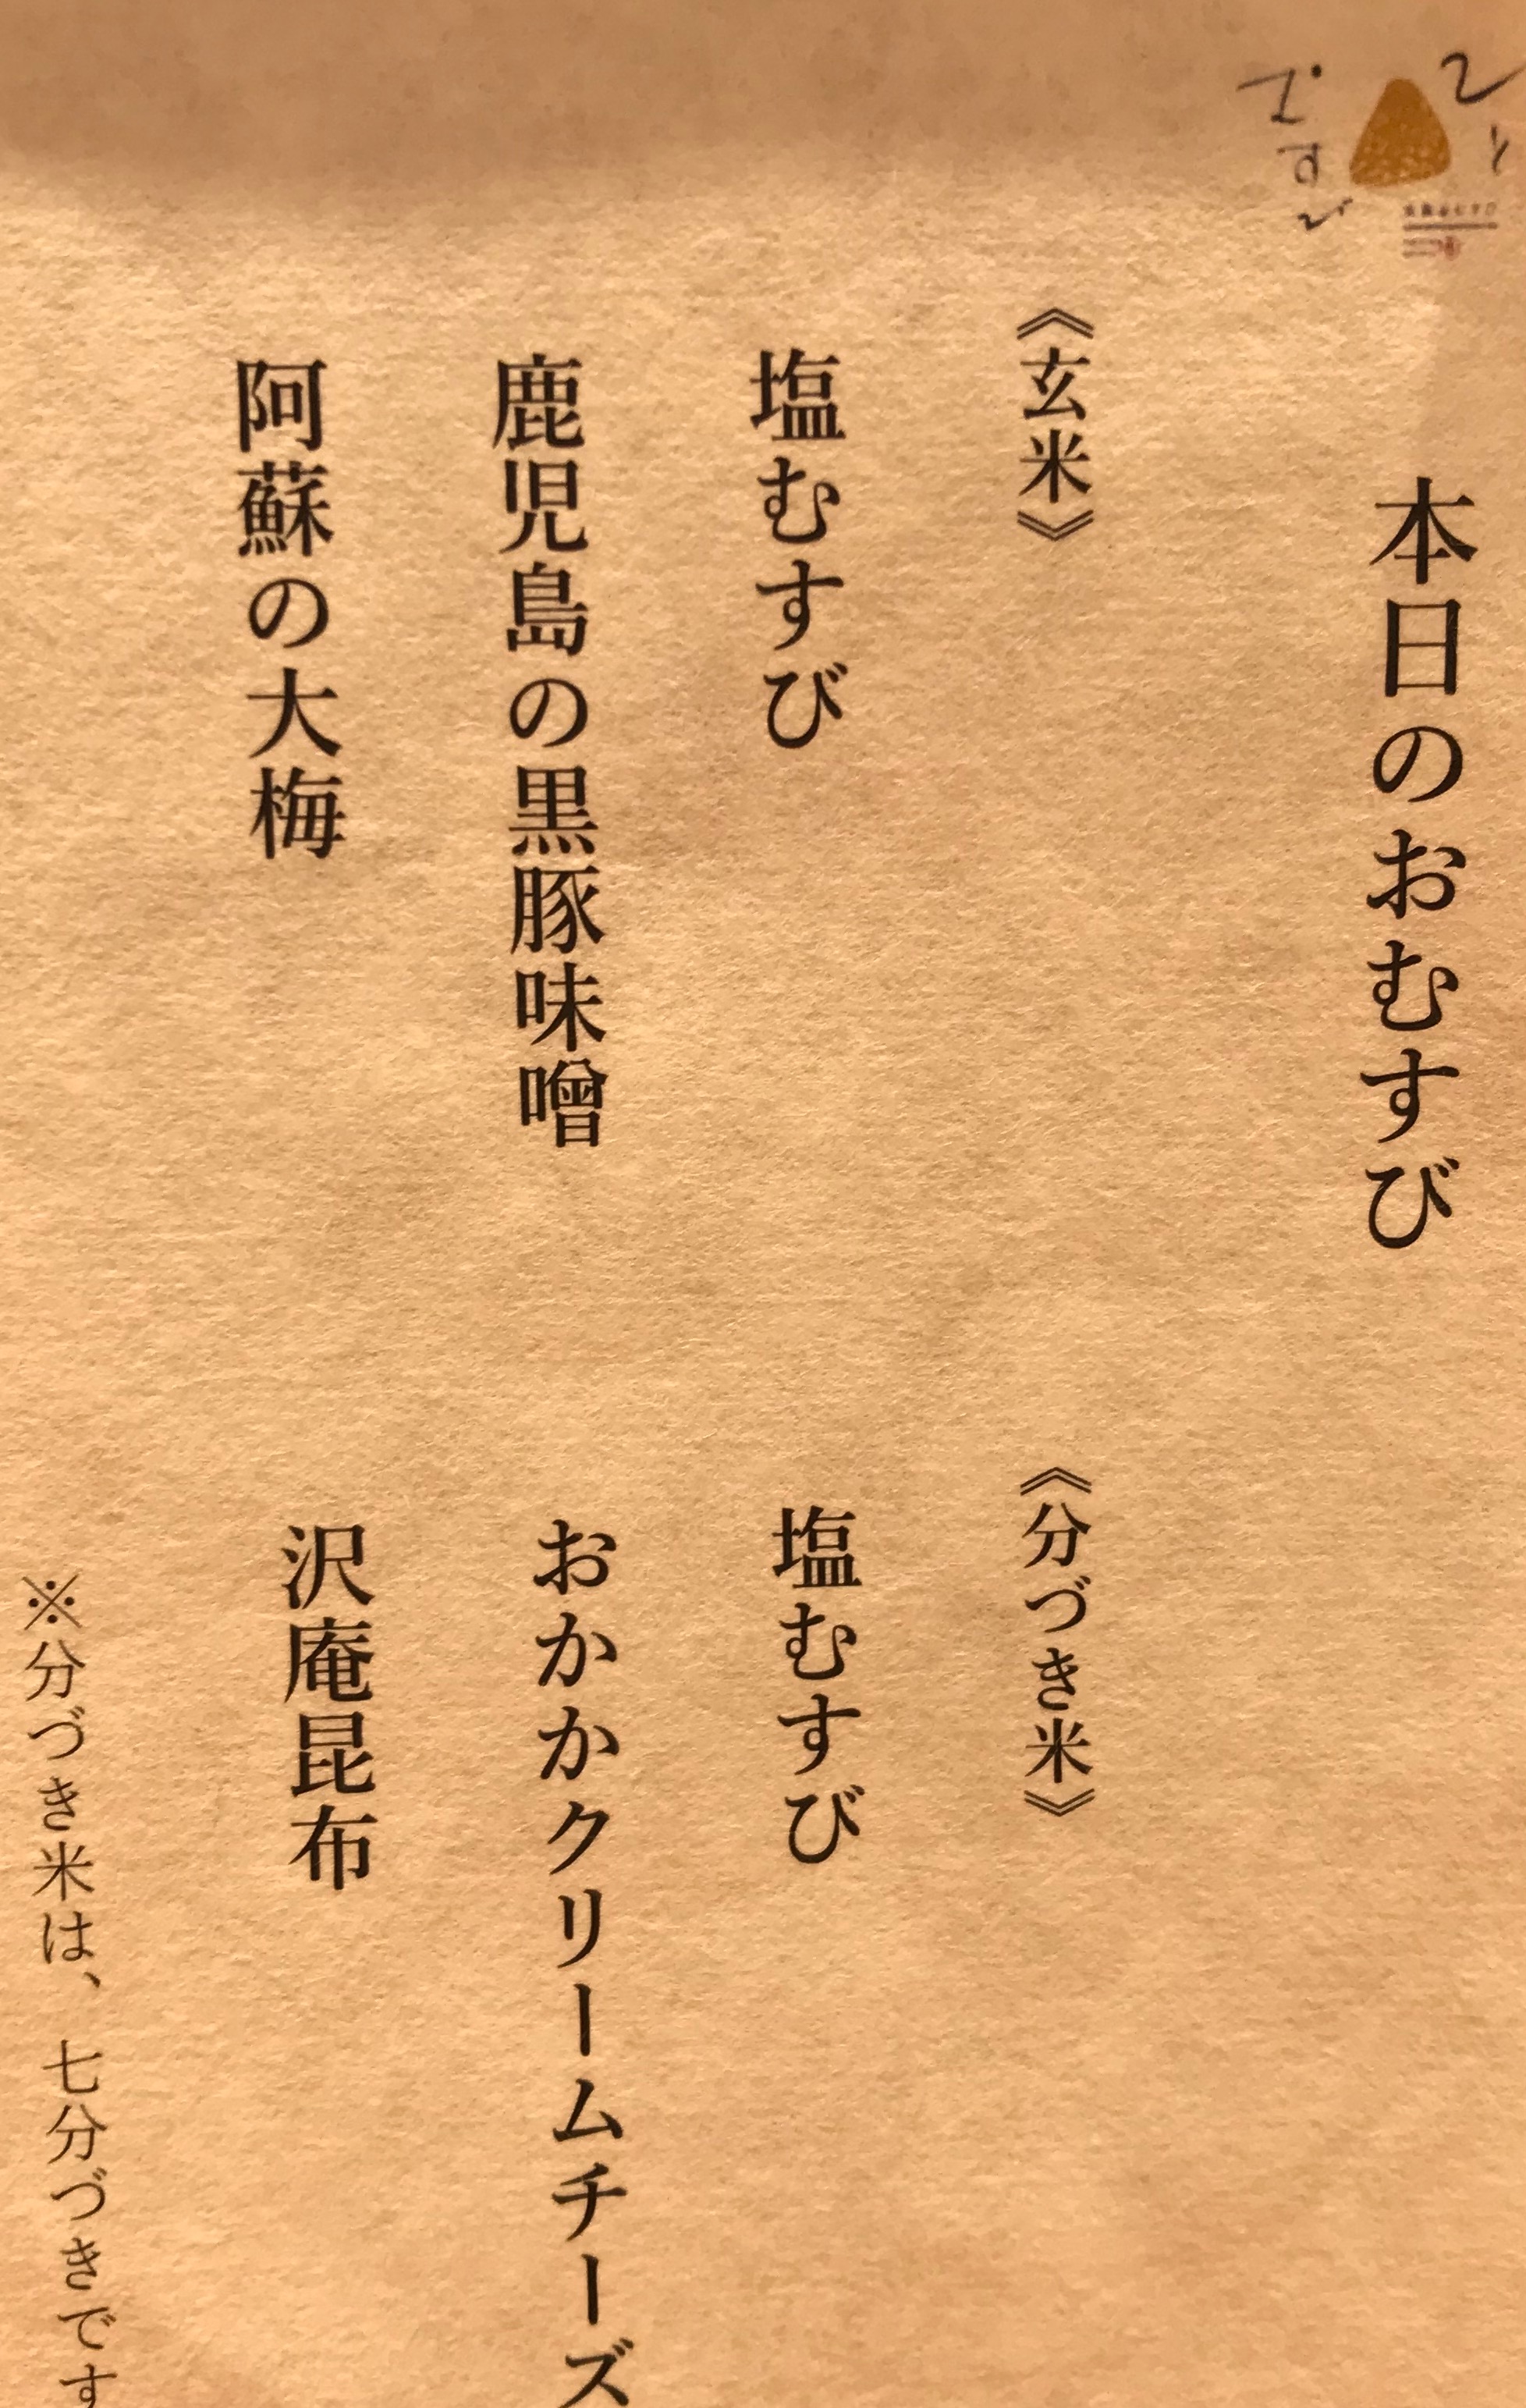 本日のおむすび
《玄米》
塩むすび
鹿児島の黒豚味噌
阿蘇の大梅
《分づき米》
塩むすび
おかかクリームチーズ
沢庵昆布
※分づき米は、七分づきです